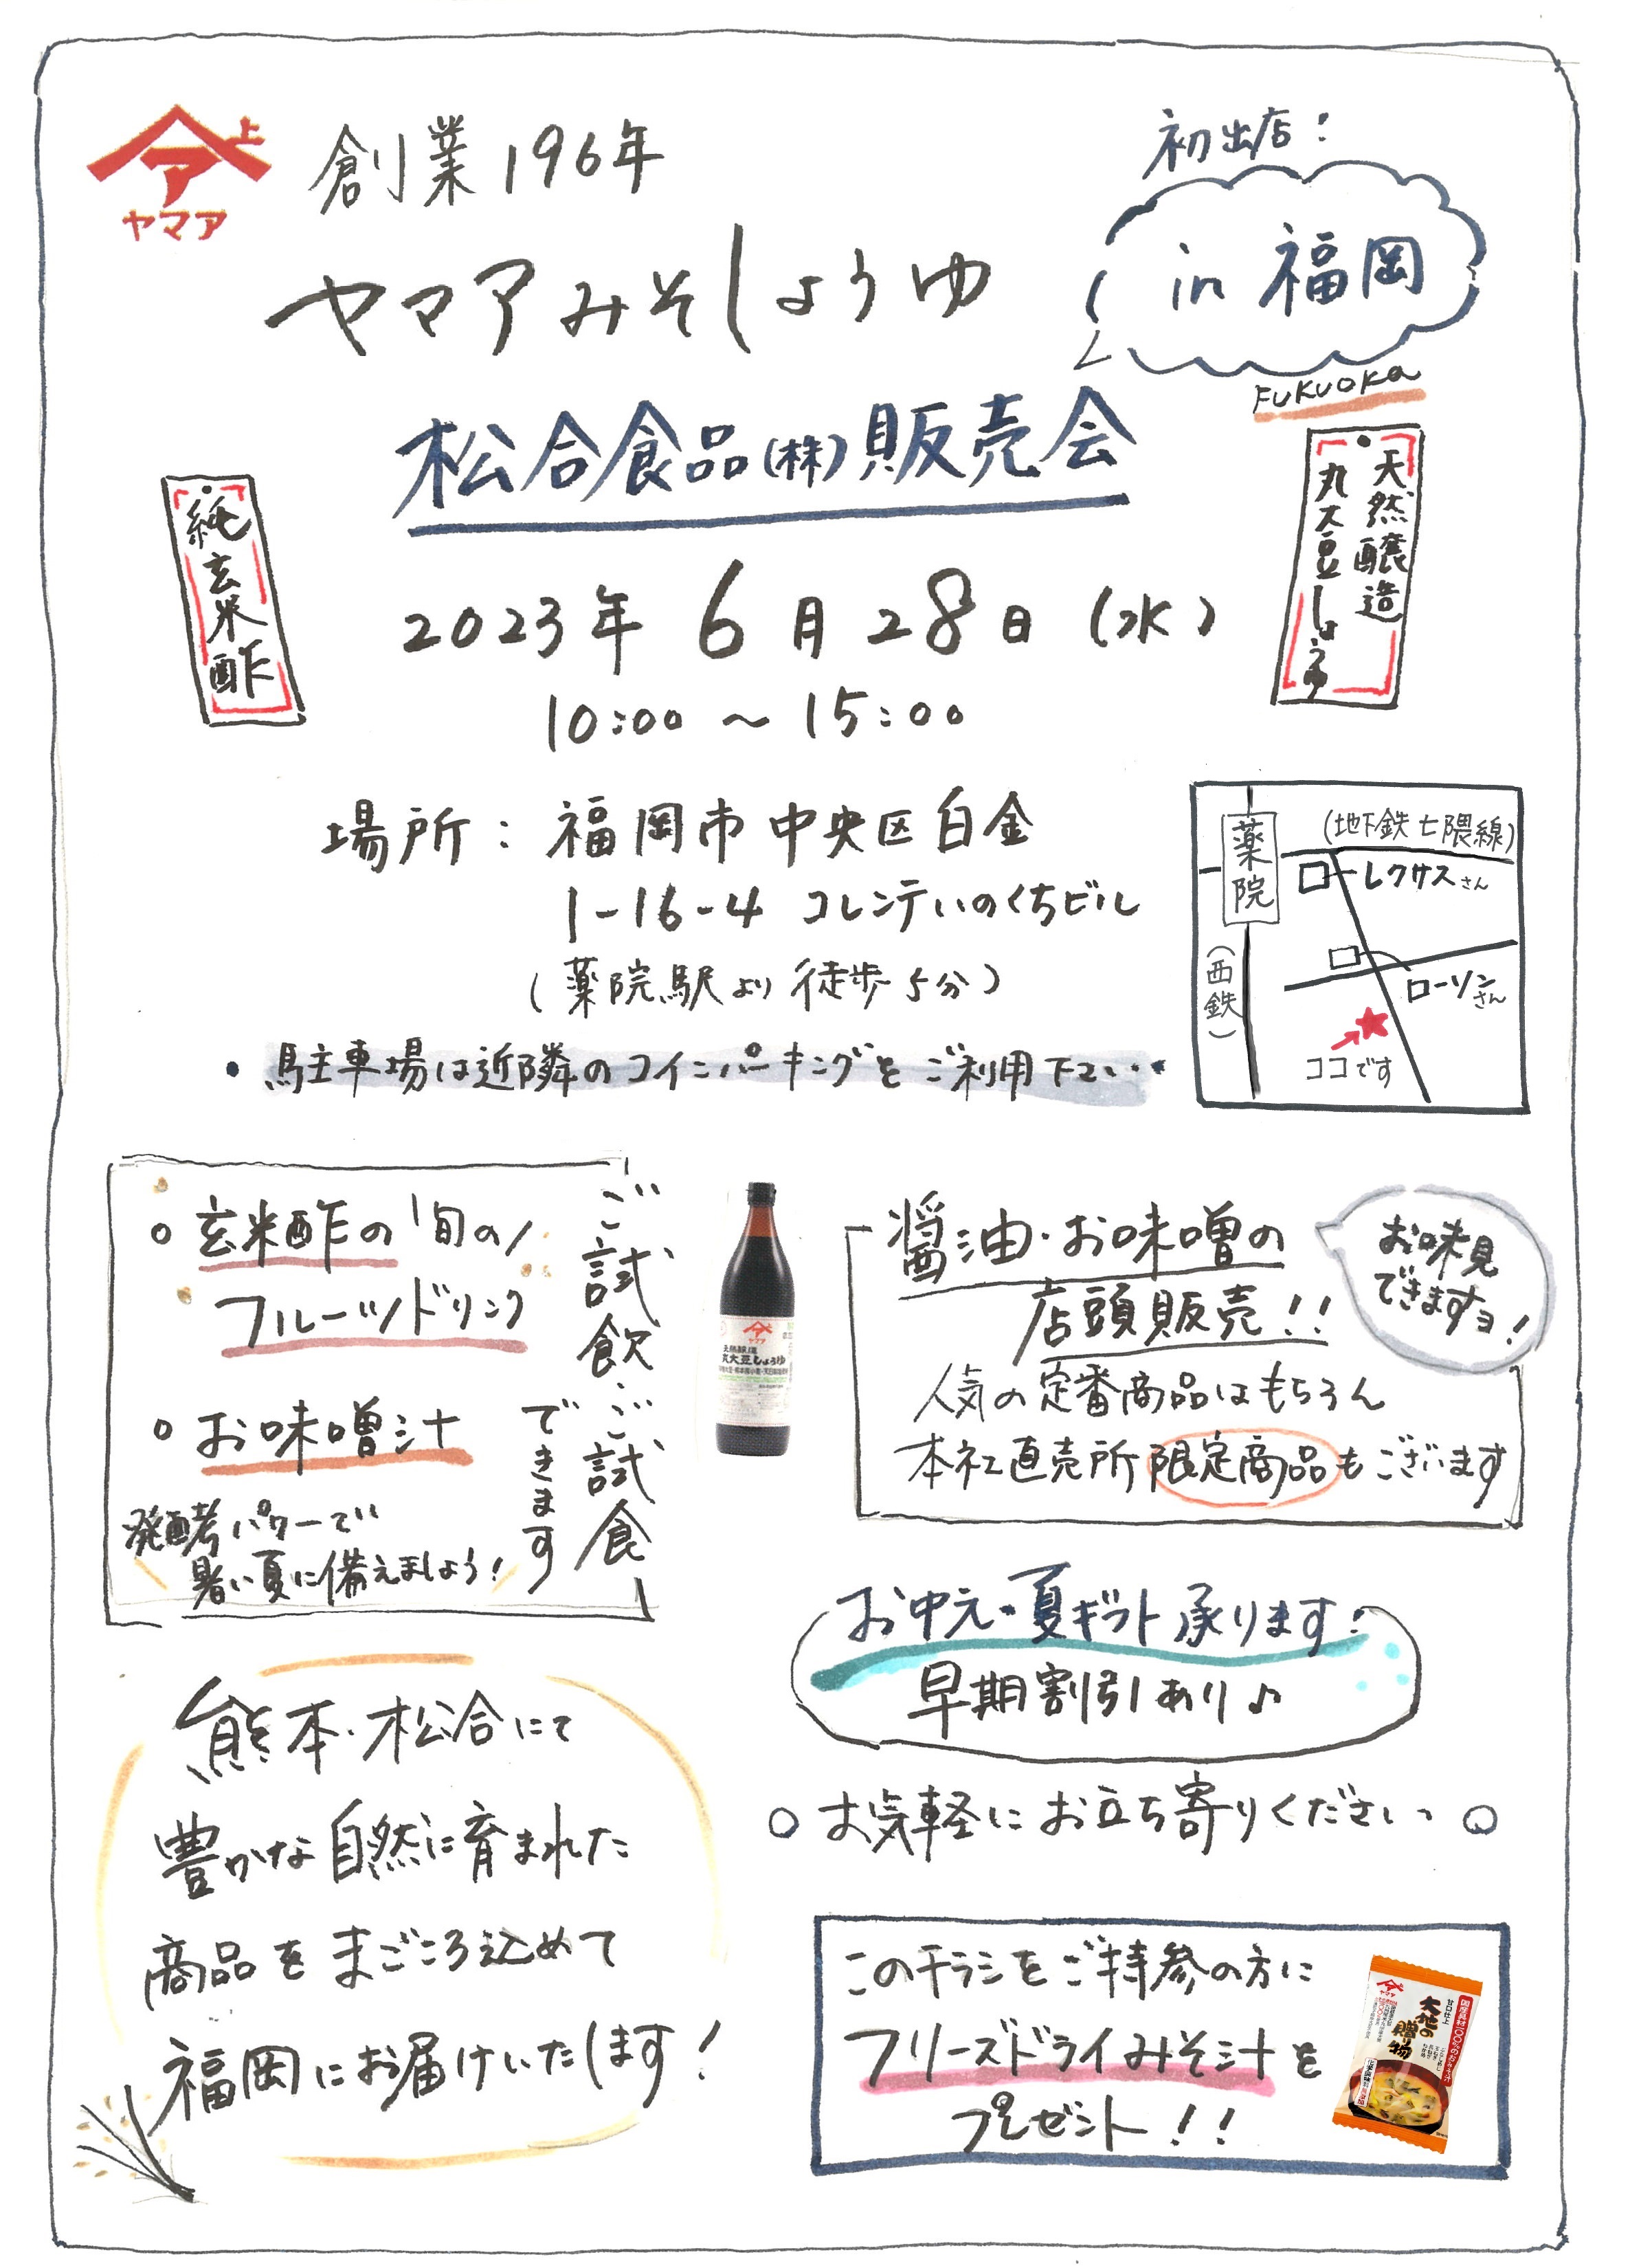 上
ア
ヤマア
創業196年
初出店!
in 福岡
FUKUOKA
ヤマアみそしょうゆ
松合食品(株)販売会
純玄米酢
天然醸造
丸大豆しょうゆ
2023年 6月28日(水)
10:00～15:00
場所：福岡市中央区白金
1-16-4 コレンテいのくちビル
(薬院駅より徒歩5分)
・駐車場は近隣のコインパーキングをご利用下さい・
薬院
(地下鉄七隈線)
レクサスさん
(西鉄)
ローソンさん
ココです
○玄米酢の旬の
フルーツドリンク
○お味噌汁
発酵パワーで
暑い夏に備えましょう!
ご試飲・ご試食
できます
ヤマア
天然醸造
丸大豆しょうゆ
醤油・お味噌の
店頭販売!!
お味見
できますヨ!
人気の定番商品はもちろん
本社直売所限定商品もございます
お中元・夏ギフト承ります!
早期割引あり♪
○お気軽にお立ち寄りください○
熊本・松合にて
豊かな自然に育まれた
商品をまごころ込めて
福岡にお届けいたします!
このチラシをご持参の方に
フリーズドライみそ汁を
プレゼント!!
ヤマア
甘口仕上
国産具材100%のおみそ汁
大地の
贈り物